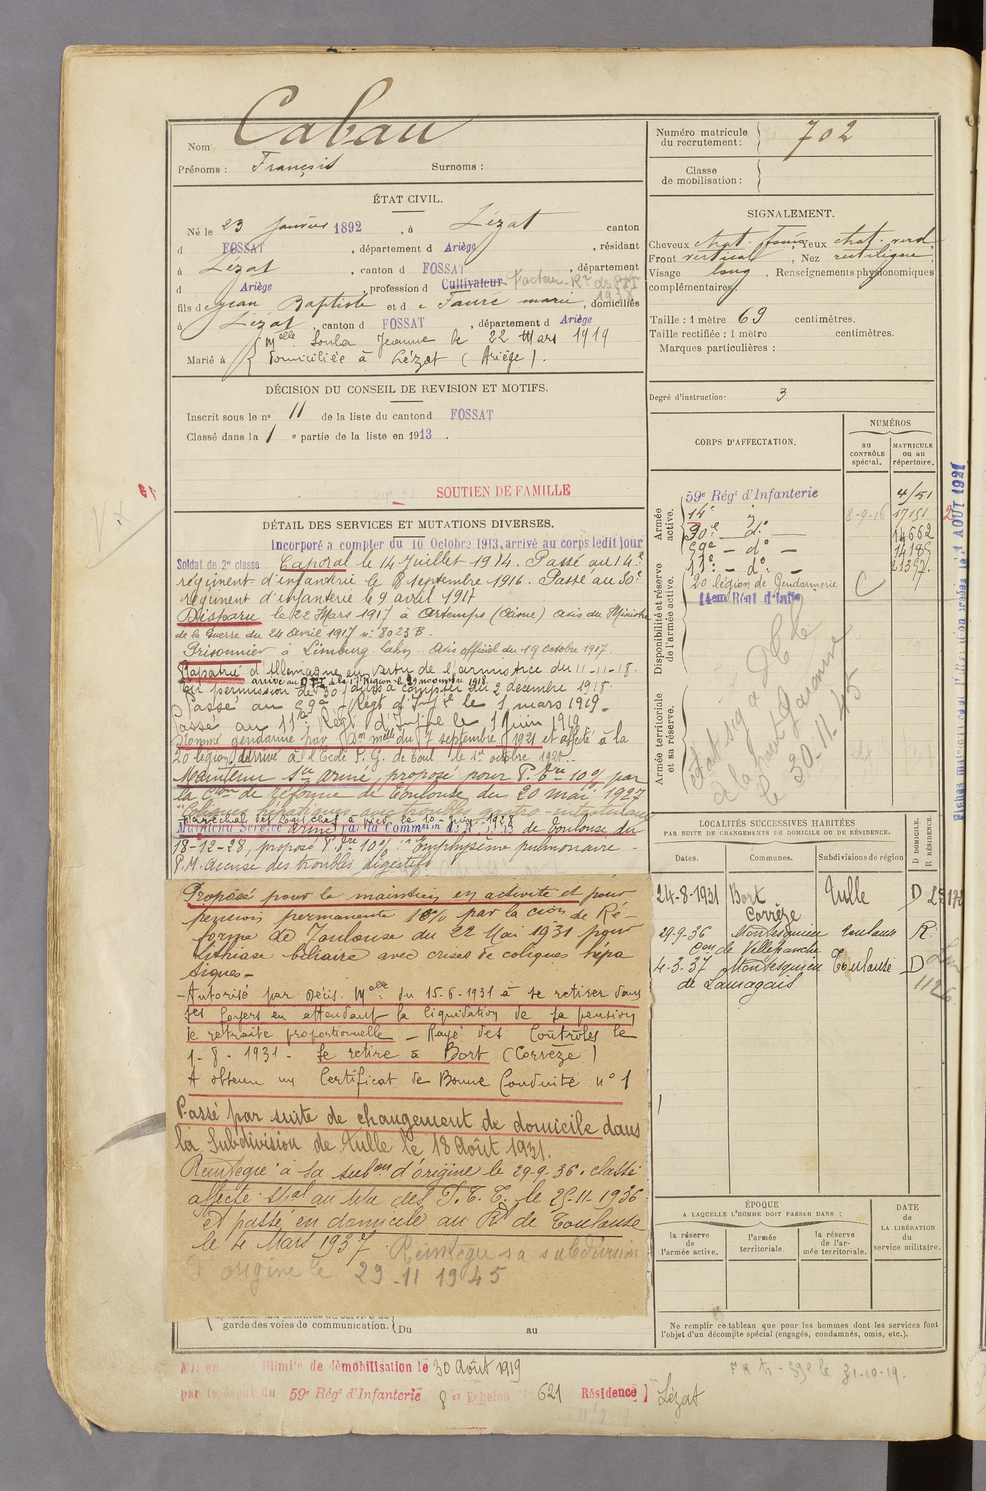 Nom Cabau
Prénoms : François Surnoms :
Numéro matricule du recrutement : 702
Classe de mobilisation :
ÉTAT CIVIL.
Né le 23 Janvier 1892, à Lézat canton
d FOSSAT, département d Ariège, résidant
à Lézat, canton d FOSSAT, département
d Ariège, profession d Cultivateur Facteur
1938
fils de Jean Baptiste et de Faure Marie, domiciliés
à Lézat, canton d FOSSAT, département d Ariège
Marié à Melle Soula Jeanne le 22 Mars 1919
domiciliée à Lézat (Ariège).
SIGNALEMENT.
Cheveux chat. foncé Yeux chat. verd.
Front vertical, Nez rectiligne,
Visage long, Renseignements physionomiques
complémentaires :
Taille : 1 mètre 69 centimètres.
Taille rectifiée : 1 mètre centimètres.
Marques particulières :
Degré d'instruction : 3
DÉCISION DU CONSEIL DE REVISION ET MOTIFS.
Inscrit sous le no 11 de la liste du canton d FOSSAT
Classé dans la 1 e partie de la liste en 1913.
SOUTIEN DE FAMILLE
DÉTAIL DES SERVICES ET MUTATIONS DIVERSES.
Incorporé a compter du 10 Octobre 1913, arrivé au corps ledit jour
Soldat de 2e classe Caporal le 14 Juillet 1914. Passé au 14e
régiment d'infanterie le 8 septembre 1916. Passé au 90e
régiment d'infanterie le 9 avril 1917
Disparu le 22 Mars 1917 à Artemps (Aisne) avis du Ministre
de la Guerre du 24 Avril 1917 no 8023 B.
Prisonnier à Limburg Lahn. Avis officiel du 19 octobre 1917.
Rapatrié d'Allemagne en vertu de l'armistice du 11-11-18.
En permission de 30 jours à compter du 2 décembre 1918.
Passé au 59e Régt d'Inf le 1 mars 1919.
Passé au 11e Régt d'Inf le 1 Juin 1919
Nommé gendarme par Don melle du 7 septembre 1921 et affecté à la
20 légion, arrivé à l'Ecole P. G. de Toul le 1er octobre 1921.
Maintenu Sce armé, proposé pour P. tre 10% par
la Con de réforme de Toulouse du 20 mai 1927
Maréchal des logis chef à pied le 10 Juin 1928
Maintenu Service armé par la Commission de Toulouse du
18-12-28, proposé P. tre 10% Emphysème pulmonaire -
P.M. accuse des troubles digestifs
Proposé pour le maintien en activité et pour
pension permanente 10% par la cion de Ré-
forme de Toulouse du 22 Mai 1931 pour
lithiase biliaire avec crises de coliques hépa
tiques -
- Autorisé par Décis. Melle du 15-6-1931 à se retirer dans
ses foyers en attendant la liquidation de sa pension
de retraite proportionnelle - Rayé des Contrôles le
1-8-1931 - Se retire à Bort (Corrèze)
A obtenu un Certificat de Bonne Conduite no 1
Passé par suite de changement de domicile dans
la Subdivision de Tulle le 18 août 1931.
Réintégré à sa subon d'origine le 29-9-36. classé
affecté spal au titre des P.T.T. le 25-11-1936
et passé en domicile au Rt de Toulouse
le 4 Mars 1937 Réintégré sa subdivision
d'origine le 29-11 1945
garde des voies de communication. Du au
Mis en congé illimité de démobilisation le 30 Août 1919
par le dépôt du 59e Régt d'Infanterie 8 er Echelon no 621 Résidence Lézat
CORPS D'AFFECTATION.
NUMÉROS
au CONTRÔLE spécial.
MATRICULE ou au répertoire.
Armée active.
59e Régt d'Infanterie
14e
90e - do
59e - do -
11e - do -
8-9-16 17151
14662
14185
21397
Disponibilité et réserve de l'armée active.
20 légion de Gendarmerie
Armée territoriale et sa réserve.
à la
le 30-11-45
LOCALITÉS SUCCESSIVES HABITÉES
PAR SUITE DE CHANGEMENTS DE DOMICILE OU DE RÉSIDENCE.
Dates. Communes. Subdivisions de région D. DOMICILE. R. RÉSIDENCE.
24-8-1931 Bort Corrèze Tulle D
29-9-36 Montesquieu Con de Villefranche Toulouse R
4-3-37 Montesquieu de Lauragais Toulouse D
1126
ÉPOQUE
A LAQUELLE L'HOMME DOIT PASSER DANS :
la réserve de l'armée active.
l'armée territoriale.
la réserve de l'armée territoriale.
DATE de LA LIBÉRATION du service militaire.
Ne remplir ce tableau que pour les hommes dont les services font
l'objet d'un décompte spécial (engagés, condamnés, omis, etc.).